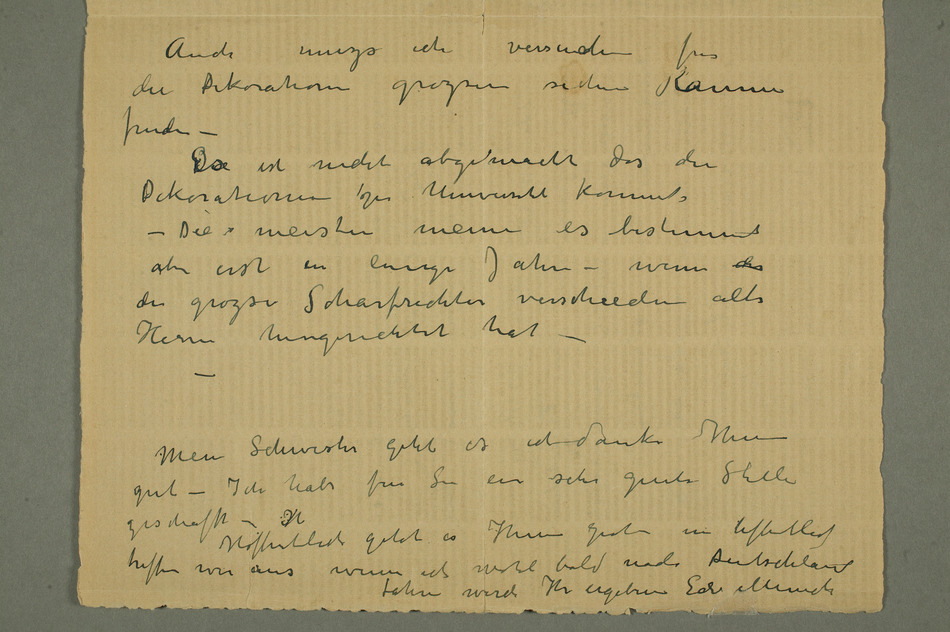 Auch muzs ich versuchen für
die Dekorationen grozsen sichen Räume
finden —
Da ist nicht abgemacht das die
Dekorationen der Universität kommt
— Die meisten meinen es bestimmt
aber erst in einige Jahre — wenn
der grozse Scharfrichter verschieden alte
Herrn hingerichtet hat —
—
Mein Schwester geht es ich danke Ihnen
gut — Ich habe für Sie ein sehr gute Stelle
geschafft —
Hoffentlich geht es Ihnen gut
treffen wir uns wenn ich wohl bald nach Deutschland
fahren werde Ihr ergebene Edv Munch